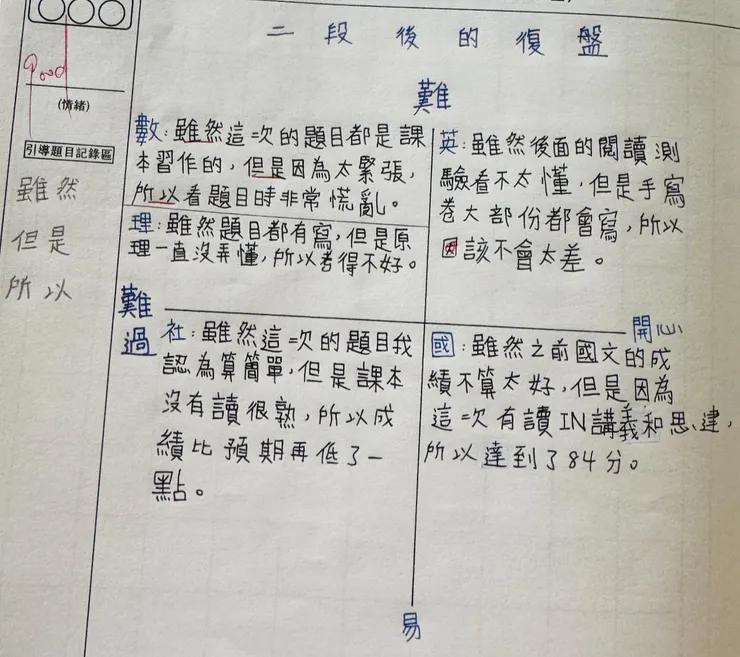 二段後的復盤
Good
(情緒)
引導題目記錄區
雖然
但是
所以
難
數:雖然這一次的題目都是課
本習作的,但是因為太緊張,
所以看題目時非常慌亂。
理:雖然題目都有寫,但是原
理一直沒弄懂,所以考得不好。
英:雖然後面的閱讀測
驗看不太懂,但是手寫
卷大部份都會寫,所以
因該不會太差。
難過
開心
社:雖然這一次的題目我
認為算簡單,但是課本
沒有讀很熟,所以成
績比預期再低了一
點。
國:雖然之前國文的成
績不算太好,但是因為
這一次有讀IN講義和思達,
所以達到了84分。
易